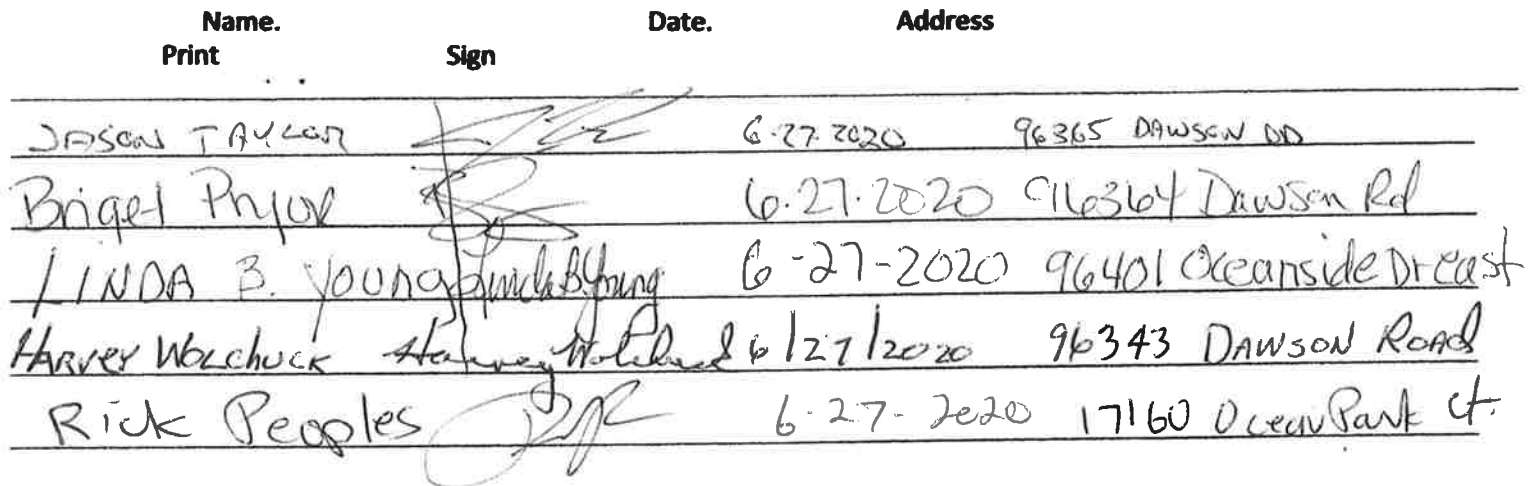 Name. Date. Address
Print Sign
JASON TAYLOR 6-27-2020 96365 DAWSON
Brigel Pryor 6.27.2020 96364 Dawson Rd
LINDA B. YOUNG Linda B Young 6-27-2020 96401 Oceanside Dr east
HARVEY WOLCHUCK Harvey Wolchuck 6/27/2020 96343 DAWSON ROAD
Rick Peoples 6-27-2020 17160 Ocean Park Ct.